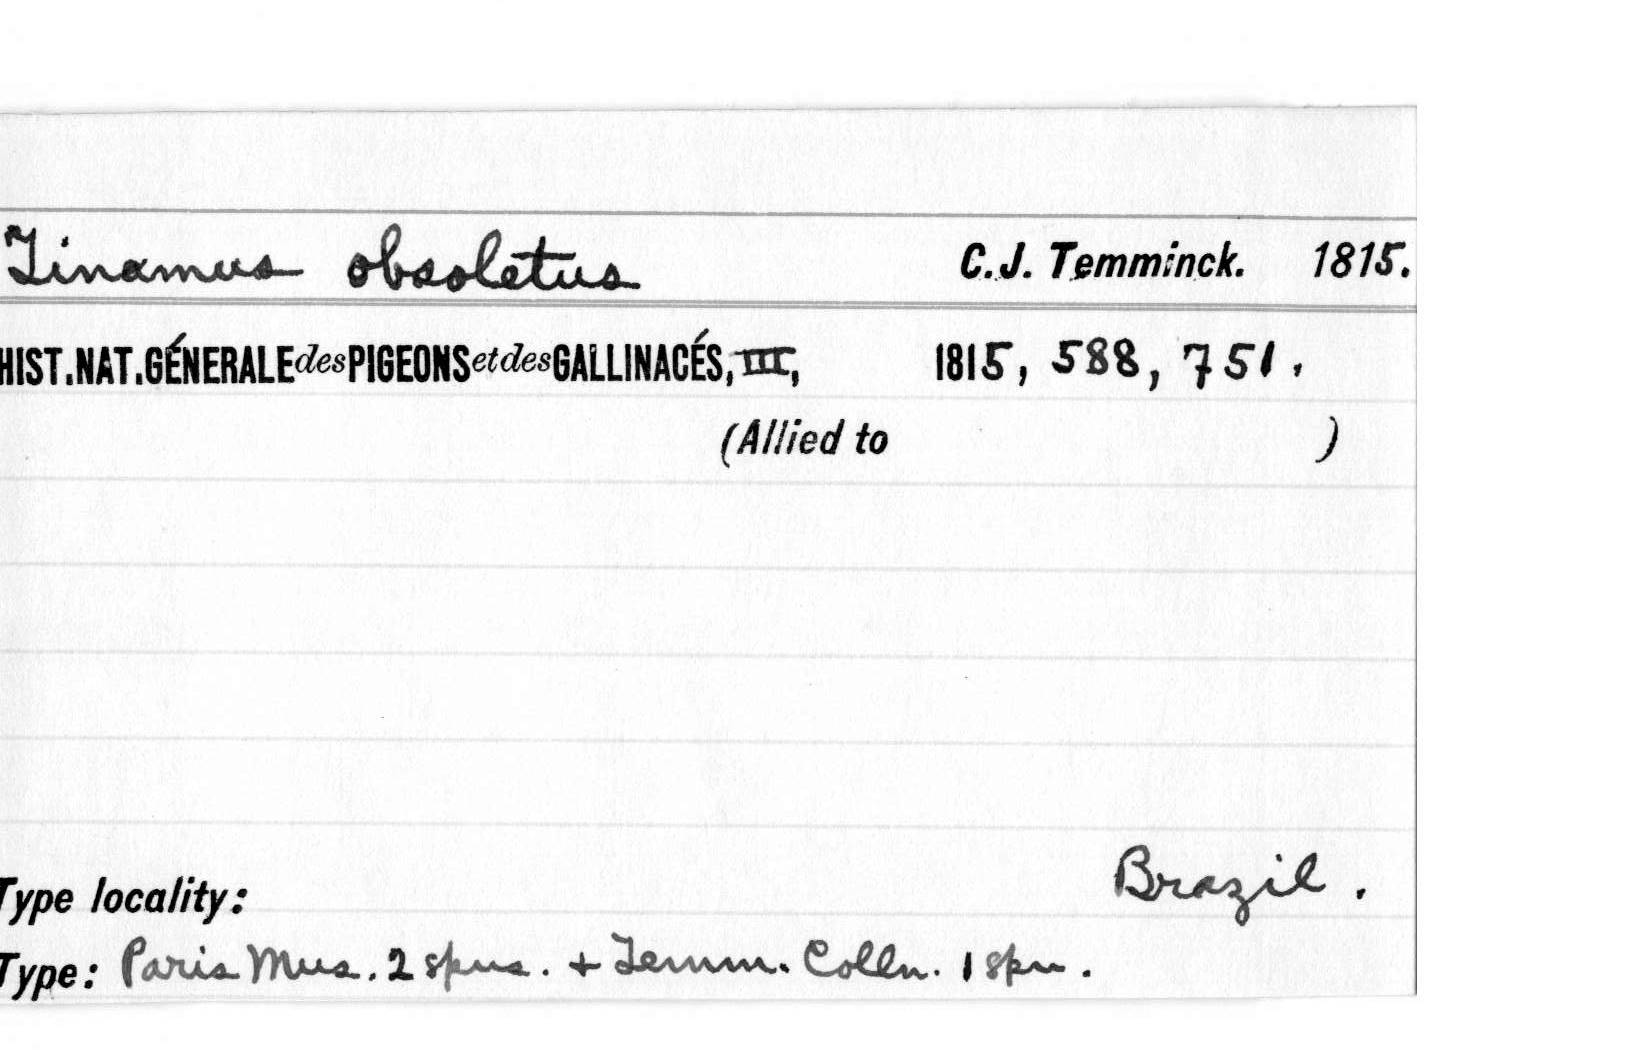 Tinamus obsoletus C.J. Temminck. 1815.
HIST.NAT.GÉNERALE des PIGEONS et des GALLINACÉS, III, 1815, 588, 751.
(Allied to )
Type locality: Brazil.
Type: Paris Mus. 2 spns. + Temm. Colln. 1 spn.